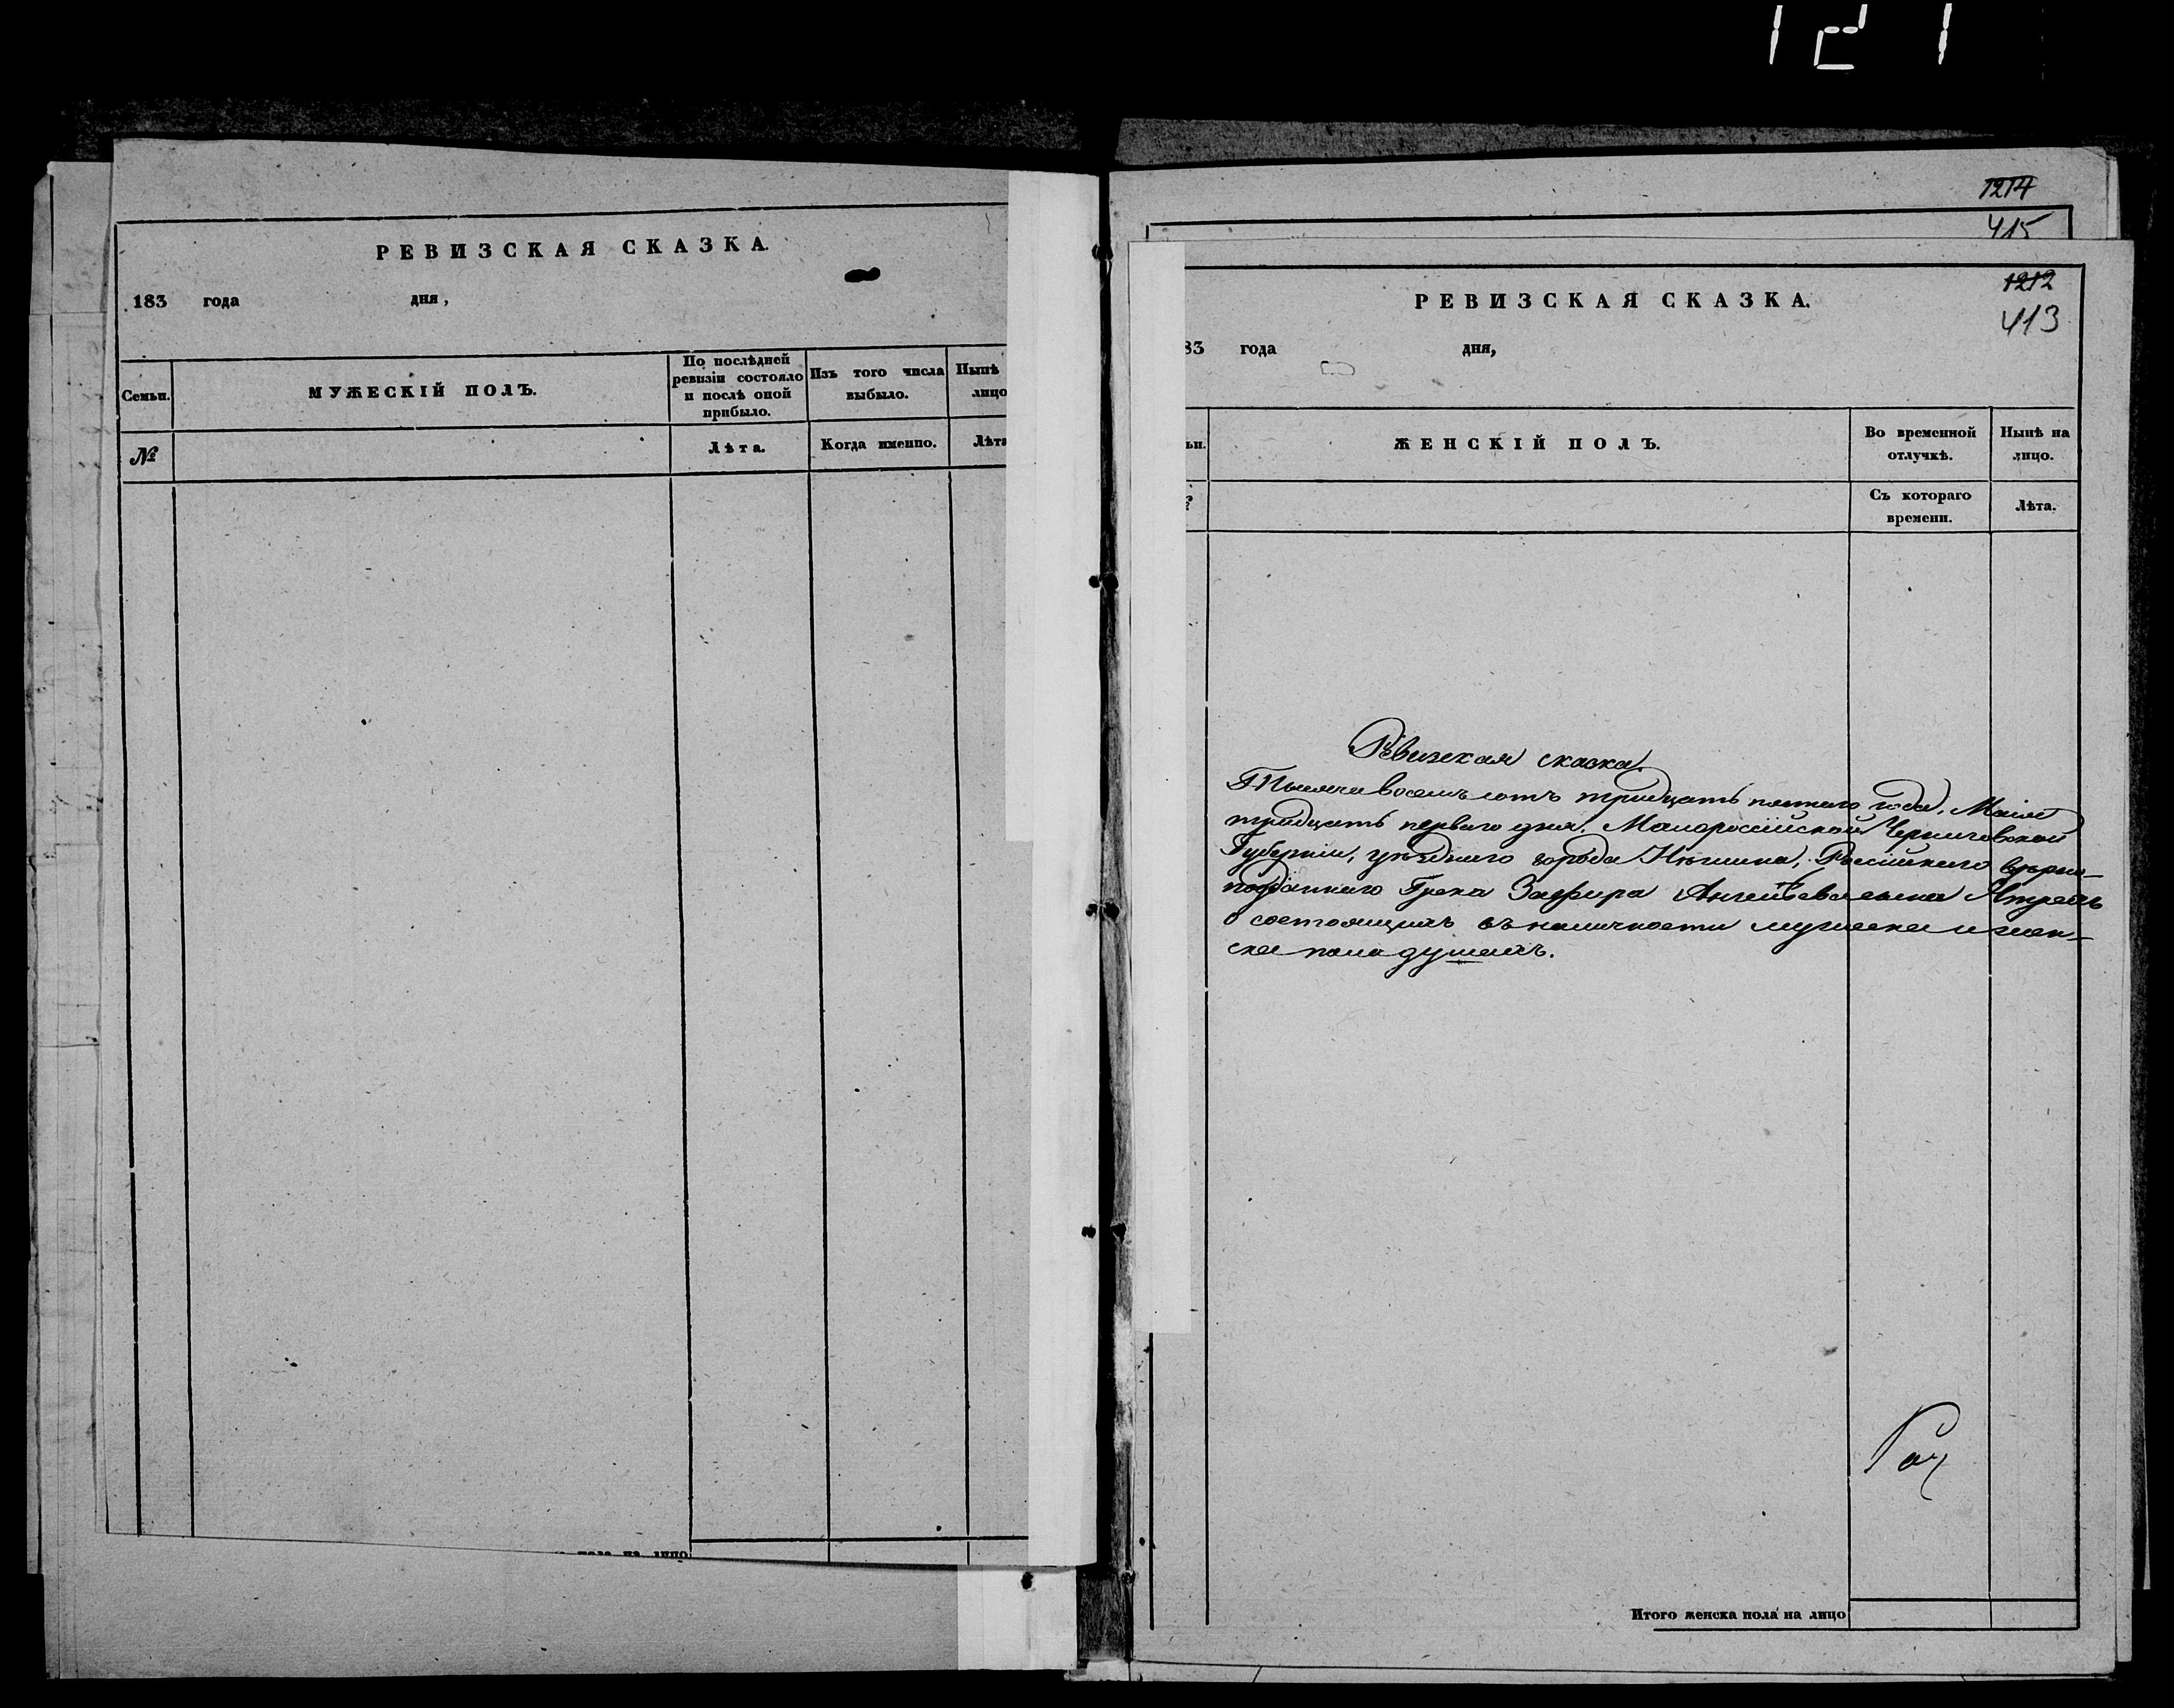 121
РЕВИЗСКАЯ СКАЗКА.
183 года дня,
Семьи.
МУЖЕСКІЙ ПОЛЪ.
По послѣдней
ревизіи состояло
и послѣ оной
прибыло.
Изъ того числа
выбыло.
Нынѣ
лицо
№
Лѣта.
Когда именно.
Лѣта
пола на лицо
1214
415
1212
413
РЕВИЗСКАЯ СКАЗКА.
83 года дня,
ьи.
ЖЕНСКІЙ ПОЛЪ.
Во временной
отлучкѣ.
Нынѣ на
лицо.
Съ котораго
времени.
Лѣта.
Ревизская сказка.
Тысяча восемъ сотъ тридцать пятаго года, Маія
тридцать перваго дня. Малороссійской Черниговской
Губерніи, уѣзднаго города Нѣжина, Россійскаго вѣрно-
подданнаго Грека Зафира
о состоящихъ въ наличности мужеска и жен-
ска пола душахъ.
Итого женска пола на лицо